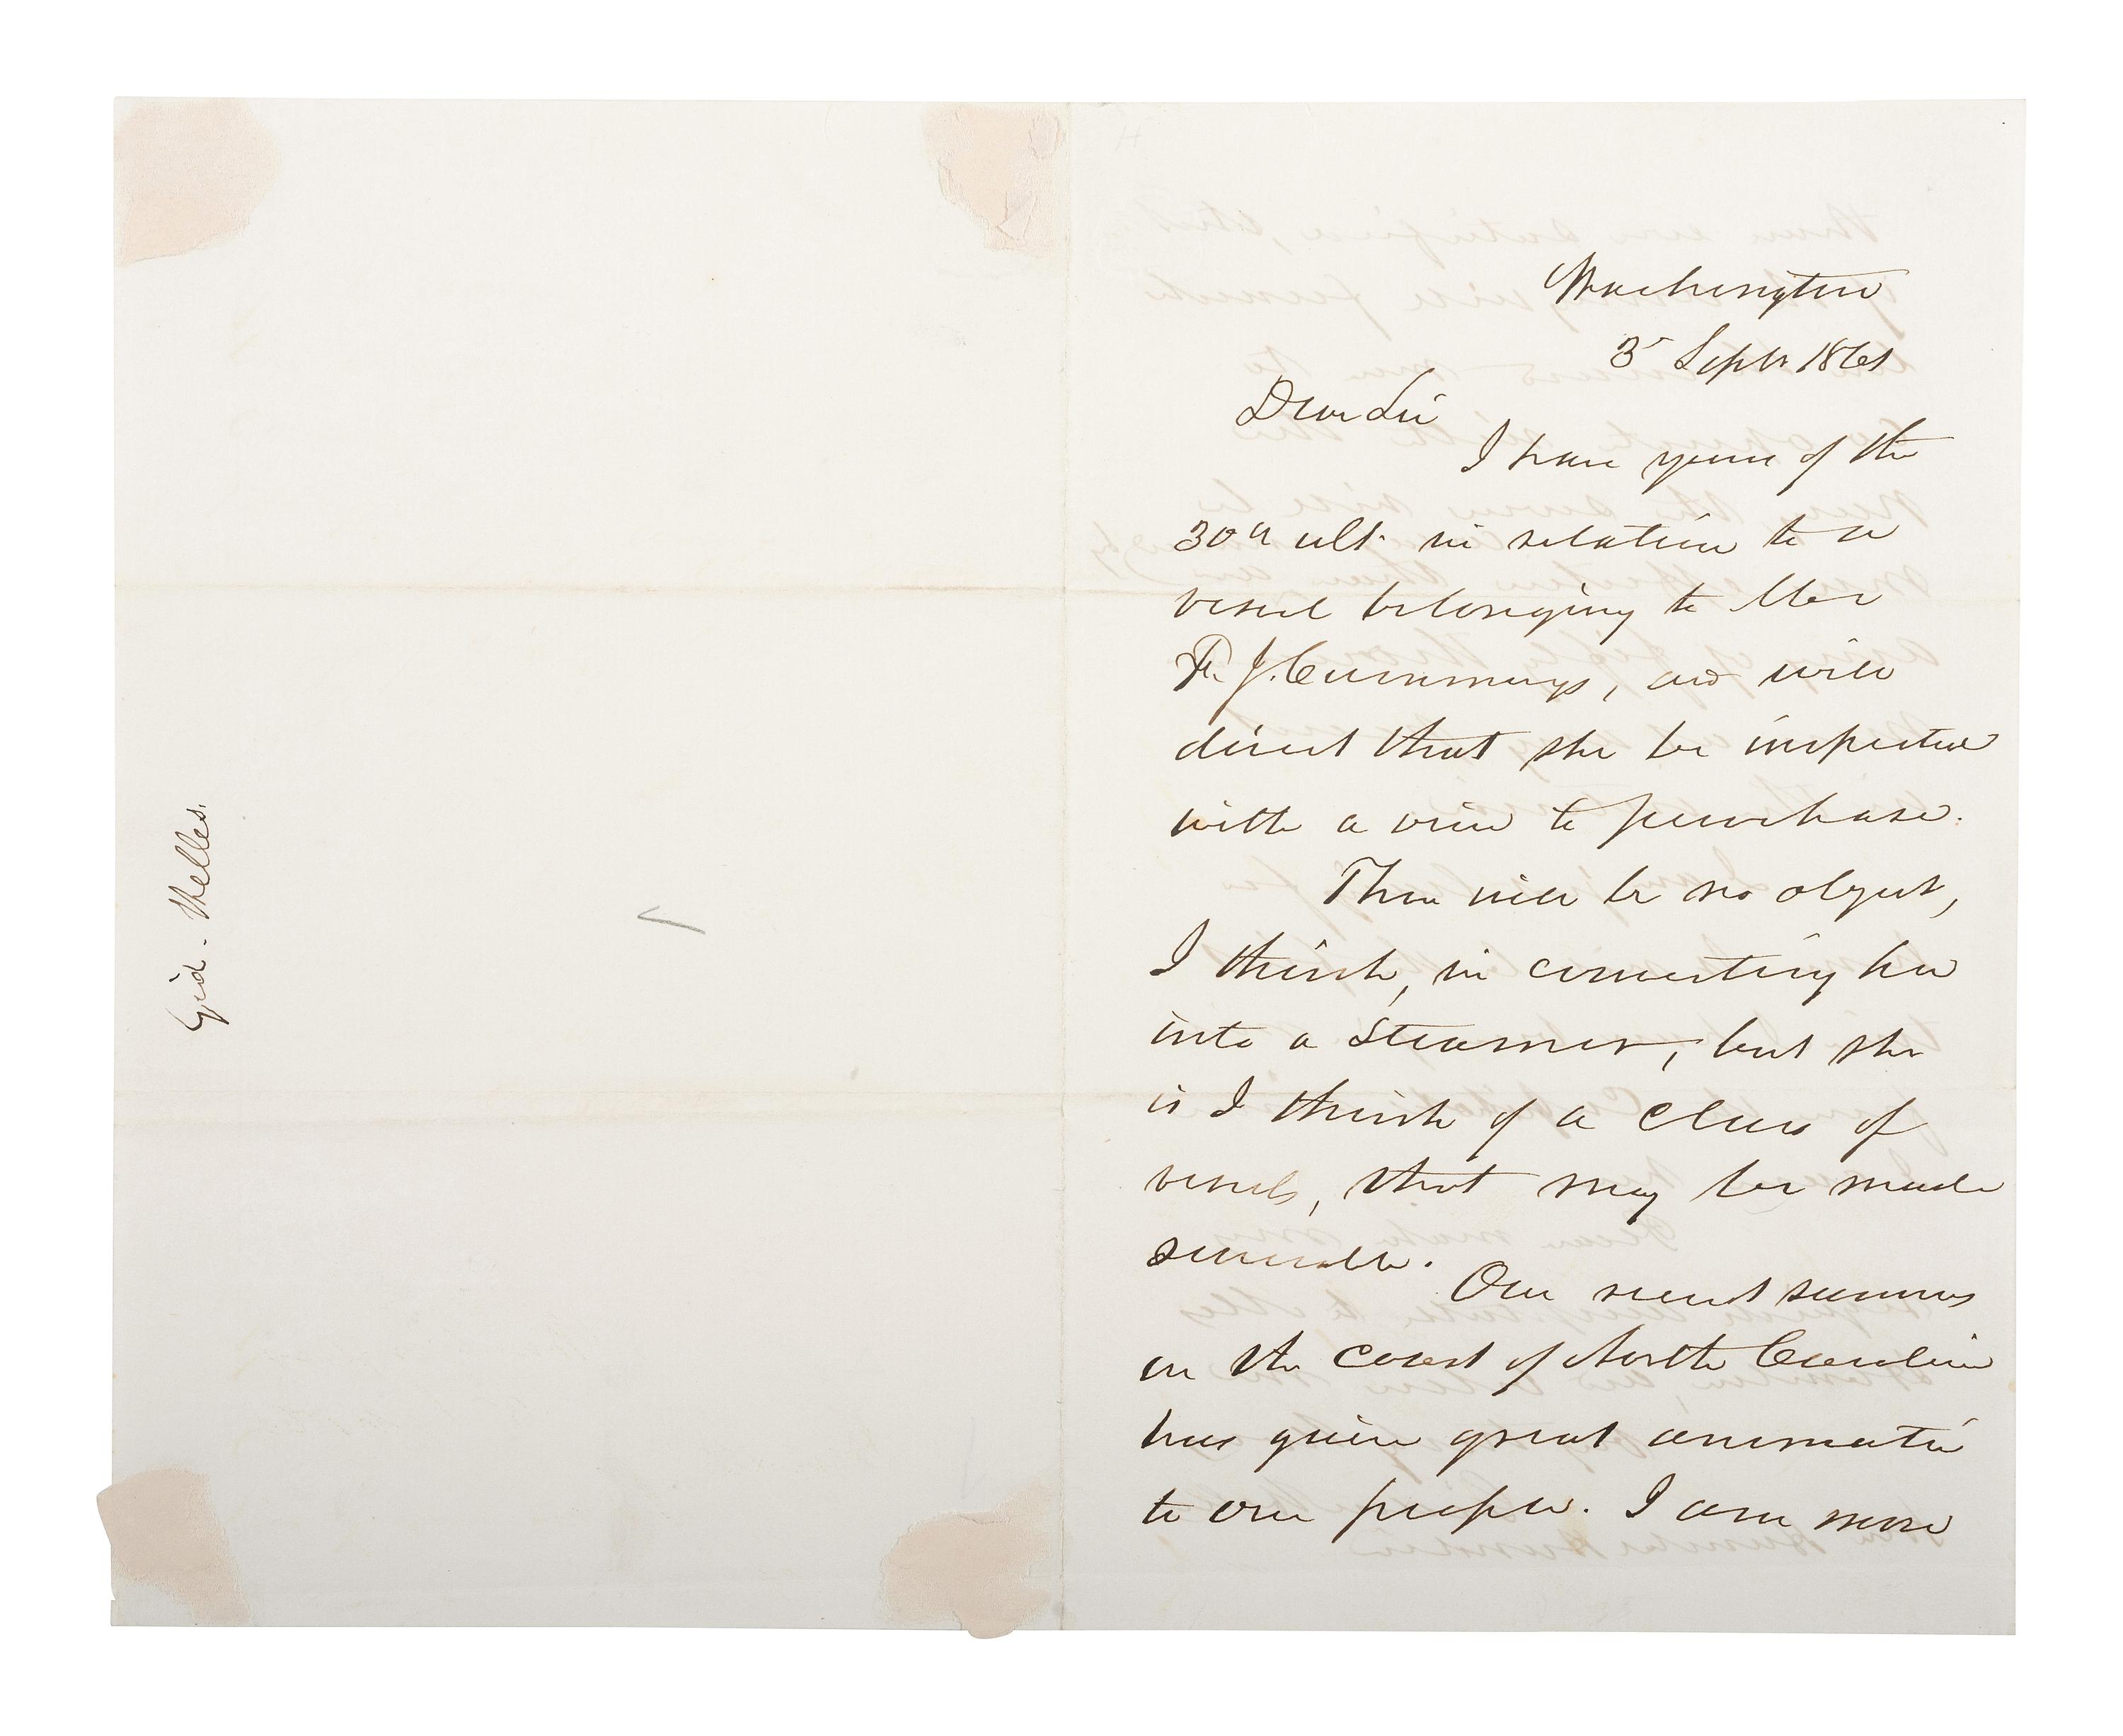 Gid. Welles.
Washington
3 Septr 1861
Dear Sir
I have yours of the
30th ult. in relation to a
vessel belonging to
J. Cummings, and will
direct that she be inspected
with a view to purchase.
There will be no object,
I think, in converting her
into a Steamer, but she
is I think of a class of
vessels, that may be made
serviceable.
Our recent success
on the coast of North Carolina
has given great animation
to our people. I am more